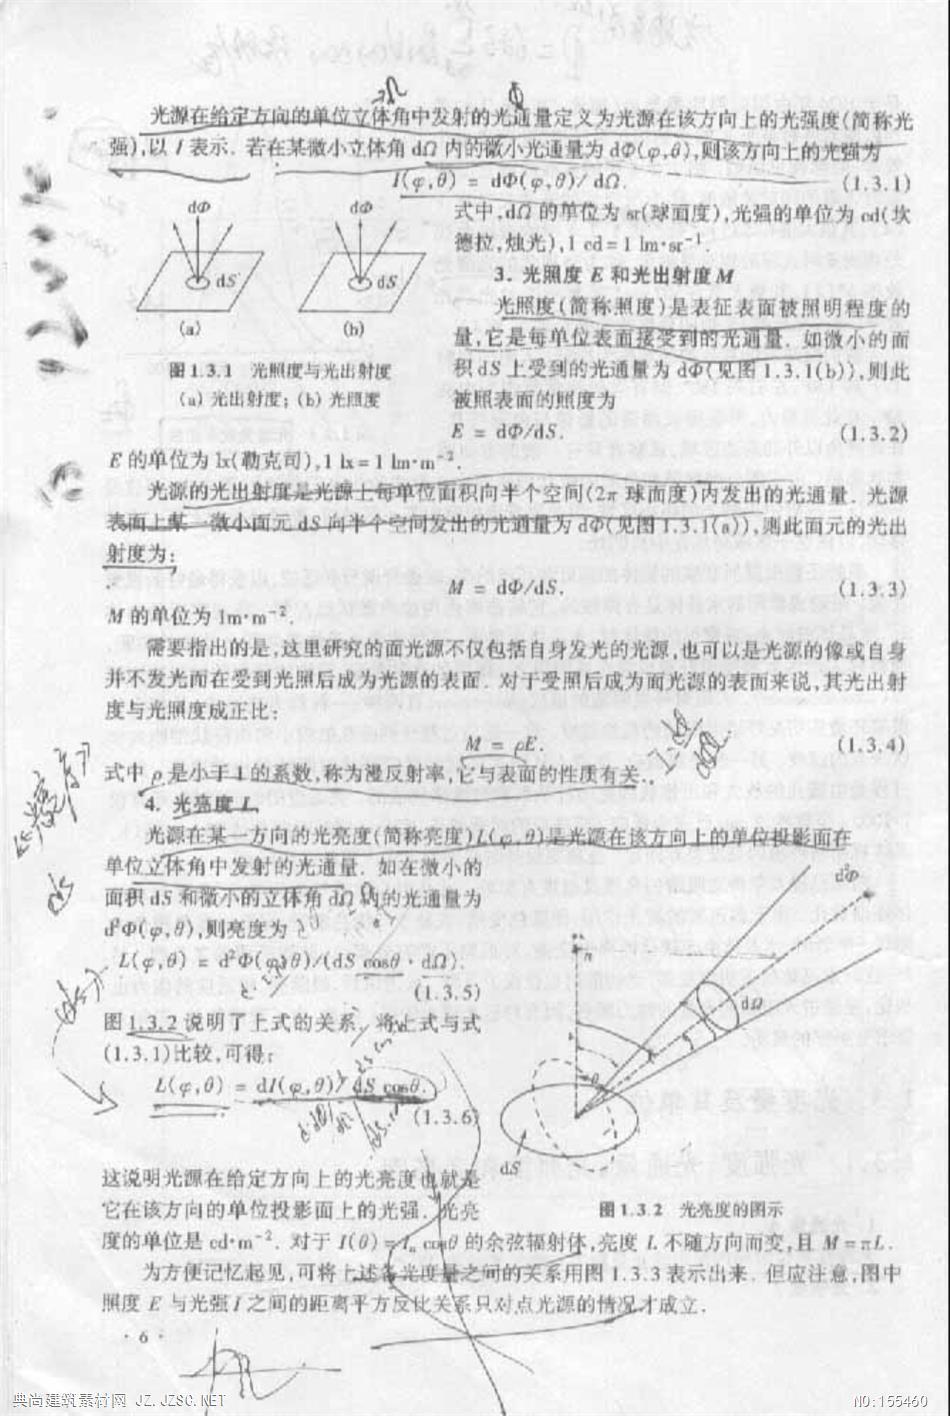 光源在给定方向的单位立体角中发射的光通量定义为光源在该方向上的光强度(简称光
强),以 I 表示. 若在某微小立体角 dΩ 内的微小光通量为 dΦ(φ,θ),则该方向上的光强为
I(φ,θ) = dΦ(φ,θ)/dΩ. (1.3.1)
dΦ dΦ
dS dS
(a) (b)
图 1.3.1 光照度与光出射度
(a) 光出射度; (b) 光照度
式中,dΩ 的单位为 sr(球面度),光强的单位为 cd(坎
德拉,烛光),1 cd=1 lm·sr⁻¹.
3. 光照度 E 和光出射度 M
光照度(简称照度)是表征表面被照明程度的
量,它是每单位表面接受到的光通量. 如微小的面
积 dS 上受到的光通量为 dΦ(见图 1.3.1(b)),则此
被照表面的照度为
E = dΦ/dS. (1.3.2)
E 的单位为 lx(勒克司),1 lx=1 lm·m⁻².
光源的光出射度是光源上每单位面积向半个空间(2π 球面度)内发出的光通量. 光源
表面上某一微小面元 dS 向半个空间发出的光通量为 dΦ(见图 1.3.1(a)),则此面元的光出
射度为:
M = dΦ/dS. (1.3.3)
M 的单位为 lm·m⁻².
需要指出的是,这里研究的面光源不仅包括自身发光的光源,也可以是光源的像或自身
并不发光而在受到光照后成为光源的表面. 对于受照后成为面光源的表面来说,其光出射
度与光照度成正比:
M = ρE. (1.3.4)
式中 ρ 是小于 1 的系数,称为漫反射率,它与表面的性质有关.
4. 光亮度 L
光源在某一方向的光亮度(简称亮度)L(φ,θ)是光源在该方向上的单位投影面在
单位立体角中发射的光通量. 如在微小的
面积 dS 和微小的立体角 dΩ 内的光通量为
d²Φ(φ,θ),则亮度为
L(φ,θ) = d²Φ(φ,θ)/(dS cosθ·dΩ).
(1.3.5)
图 1.3.2 说明了上式的关系. 将上式与式
(1.3.1)比较,可得:
L(φ,θ) = dI(φ,θ)/dS cosθ.
(1.3.6)
d²Φ
n
dΩ
θ
dS
图 1.3.2 光亮度的图示
这说明光源在给定方向上的光亮度也就是
它在该方向的单位投影面上的光强. 光亮
度的单位是 cd·m⁻². 对于 I(θ)=Iₙ cosθ 的余弦辐射体,亮度 L 不随方向而变,且 M=πL.
为方便记忆起见,可将上述各光度量之间的关系用图 1.3.3 表示出来. 但应注意,图中
照度 E 与光强 I 之间的距离平方反比关系只对点光源的情况才成立.
· 6 ·
典尚建筑素材网 JZ.JZSC.NET NO:155460